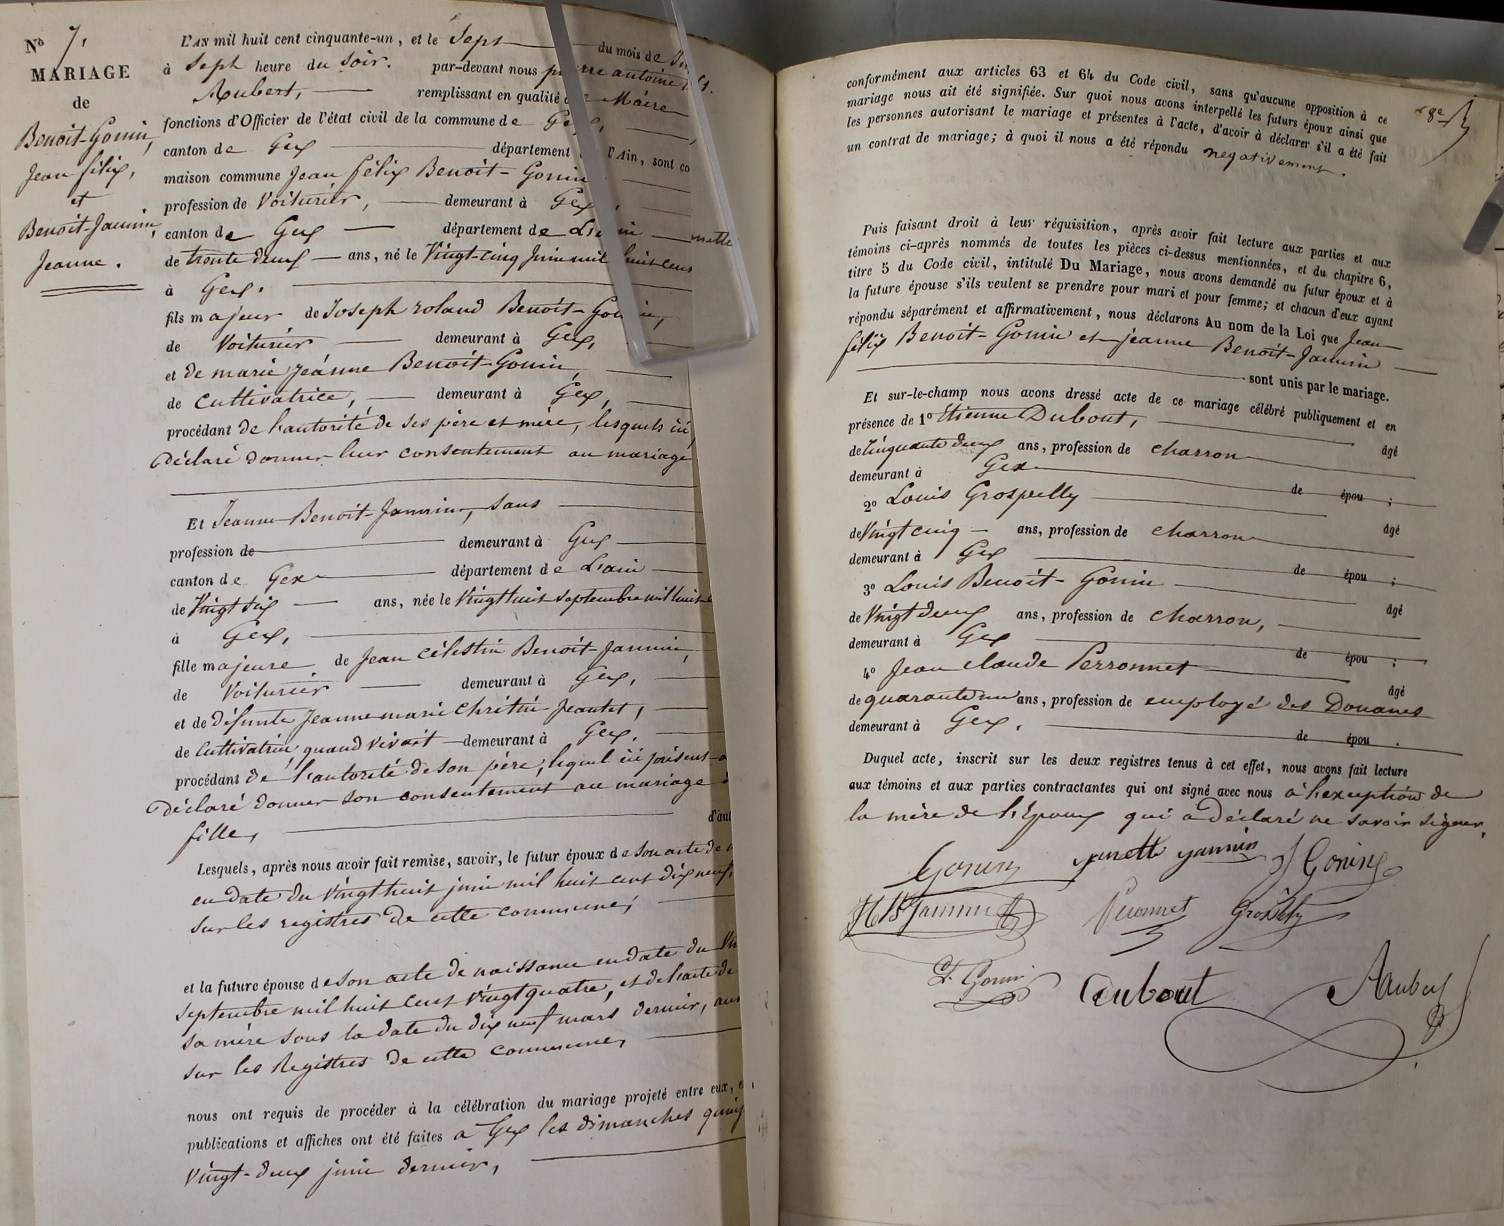 No 7.
MARIAGE
de
Benoit-Gonin,
Jean félix,
et
Benoit-Jannin,
Jeanne.
L'AN mil huit cent cinquante-un, et le Sept du mois de
à Sept heure du Soir. par-devant nous pierre antoine
Aubert, remplissant en qualité de Maire
fonctions d'Officier de l'état civil de la commune de Gex,
canton de Gex département l'Ain, sont co
maison commune Jean félix Benoit-Gonin
profession de Voiturier, demeurant à Gex,
canton de Gex département de L'ain
de trente deux ans, né le Vingt-cinq Juin mil huit cent
à Gex.
fils majeur de Joseph roland Benoit-Gonin,
de Voiturier demeurant à Gex,
et de marie jeanne Benoit-Gonin,
de Cultivatrice, demeurant à Gex,
procédant de l'autorité de ses père et mère, lesquels ici
Déclaré donner leur consentement au mariage
Et Jeanne Benoit-Jannin, Sans
profession de demeurant à Gex
canton de Gex département de L'ain
de Vingt six ans, née le Vingt huit septembre mil huit c
à Gex,
fille majeure de Jean Célestin Benoit-Jannin,
de Voiturier demeurant à Gex,
et de défunte Jeanne marie Chritin Jeantet,
de Cultivatrice quand vivait demeurant à Gex,
procédant de l'autorité de son père, lequel ici présent a
Déclaré donner son consentement au mariage d
fille,
Lesquels, après nous avoir fait remise, savoir, le futur époux de son acte de
en date du Vingt huit juin mil huit cent dix neuf,
sur les registres de cette commune;
et la future épouse de son acte de naissance en date du Vin
septembre mil huit cent vingt quatre, et de l'acte de
sa mère sous la date du dix neuf mars dernier, aus
sur les Registres de cette commune,
nous ont requis de procéder à la célébration du mariage projeté entre eux, e
publications et affiches ont été faites à Gex les dimanches quinz
Vingt-deux juin dernier,
8e
conformément aux articles 63 et 64 du Code civil, sans qu'aucune opposition à ce
mariage nous ait été signifiée. Sur quoi nous avons interpellé les futurs époux ainsi que
les personnes autorisant le mariage et présentes à l'acte, d'avoir à déclarer s'il a été fait
un contrat de mariage; à quoi il nous a été répondu negativement.
Puis faisant droit à leur réquisition, après avoir fait lecture aux parties et aux
témoins ci-après nommés de toutes les pièces ci-dessus mentionnées, et du chapitre 6,
titre 5 du Code civil, intitulé Du Mariage, nous avons demandé au futur époux et à
la future épouse s'ils veulent se prendre pour mari et pour femme; et chacun d'eux ayant
répondu séparément et affirmativement, nous déclarons Au nom de la Loi que Jean
félix Benoit-Gonin et jeanne Benoit-Jannin
sont unis par le mariage.
Et sur-le-champ nous avons dressé acte de ce mariage célébré publiquement et en
présence de 1o Etienne Dubout,
âgé
de Cinquante deux ans, profession de charron
demeurant à Gex de épou ;
2o Louis Grospelly
âgé
de Vingt cinq ans, profession de charron
demeurant à Gex de épou ;
3o Louis Benoit-Gonin
âgé
de Vingt deux ans, profession de charron,
demeurant à Gex de épou ;
4o Jean claude Perronnet
âgé
de quarante un ans, profession de employé des Douanes
demeurant à Gex. de épou .
Duquel acte, inscrit sur les deux registres tenus à cet effet, nous avons fait lecture
aux témoins et aux parties contractantes qui ont signé avec nous à l'exception de
la mère de l'Epoux qui a Déclaré ne savoir signer.
Gonin janette jannin J Gonin
Jannin Peronnet Grospelly
L. Gonin Dubout Aubert